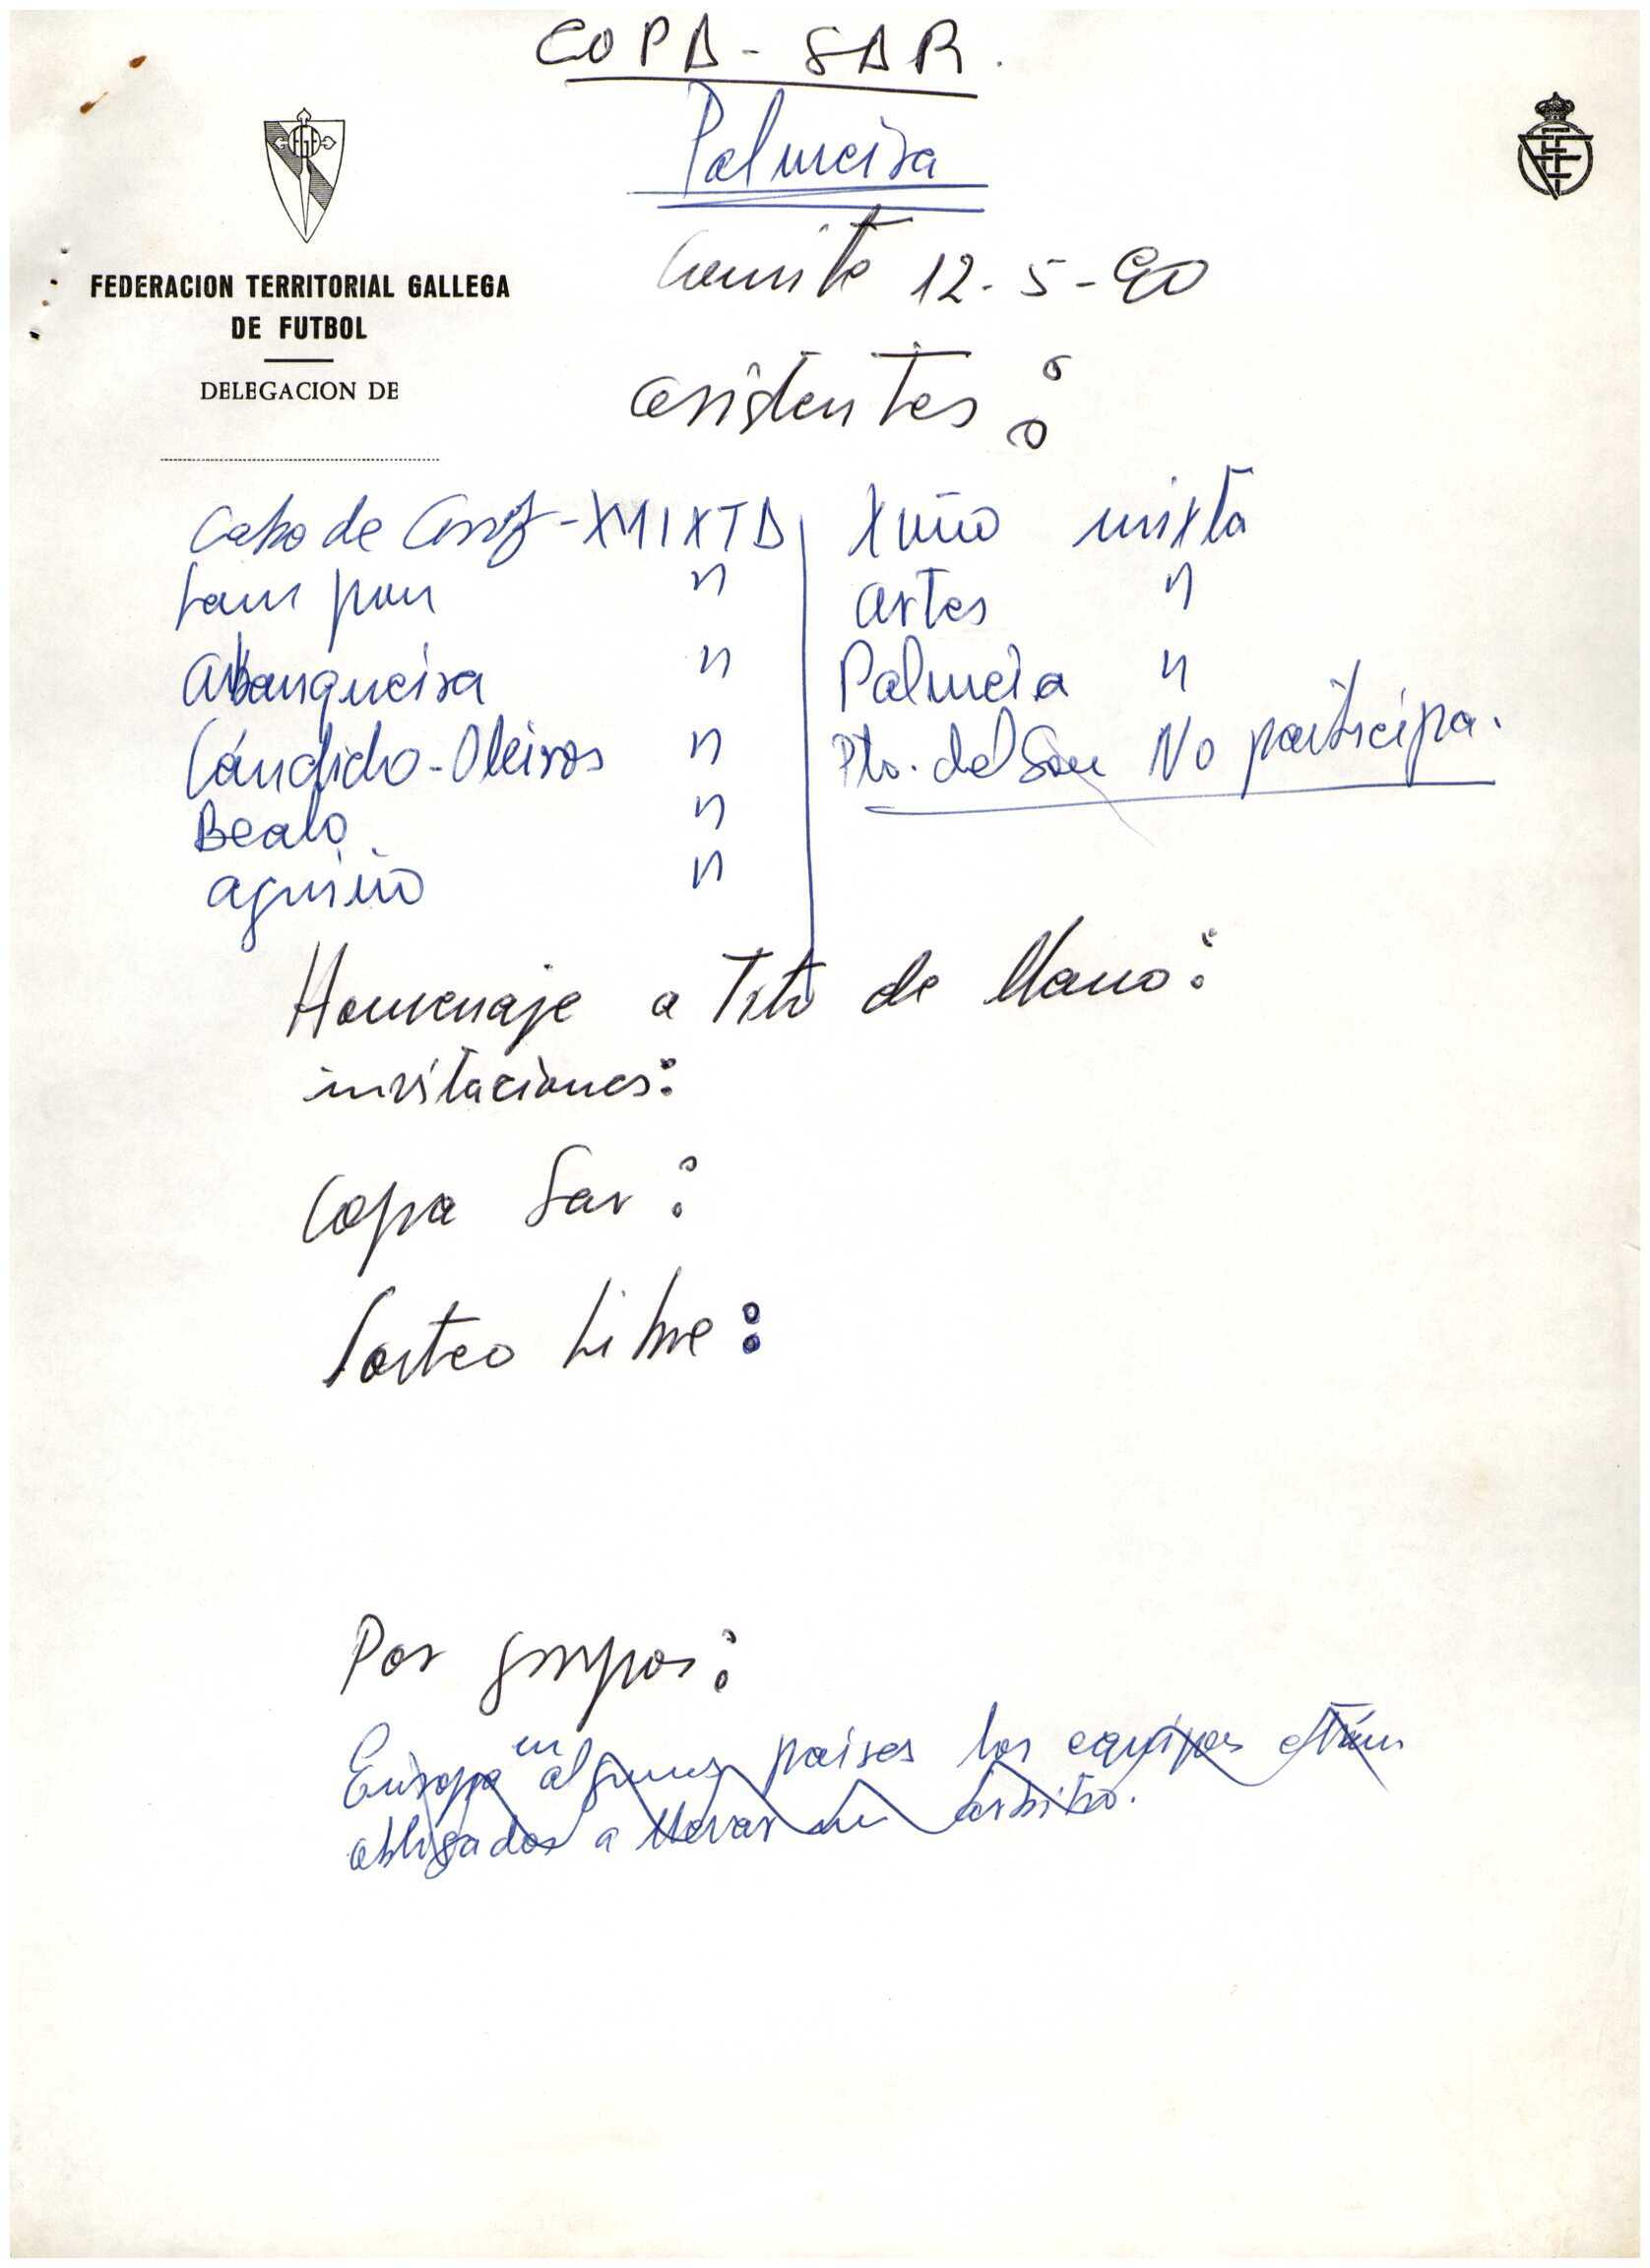 COPA - SAR.
Palmeira
FEDERACION TERRITORIAL GALLEGA
DE FUTBOL
DELEGACION DE
Comite 12-5-90
asistentes:
Cabo de - XMIXTA | Xuño mixta
"| artes "
" | Palmeira "
Cándido-Oleiros " | Pto. del Son No participa.
Bealo "
aguiño "
Homenaje a Tito de Mano:
invitaciones:
Copa Sar:
Sorteo Libre:
Por grupos:
Europa en algunos paises los equipos están
obligados a llevar un arbitro.